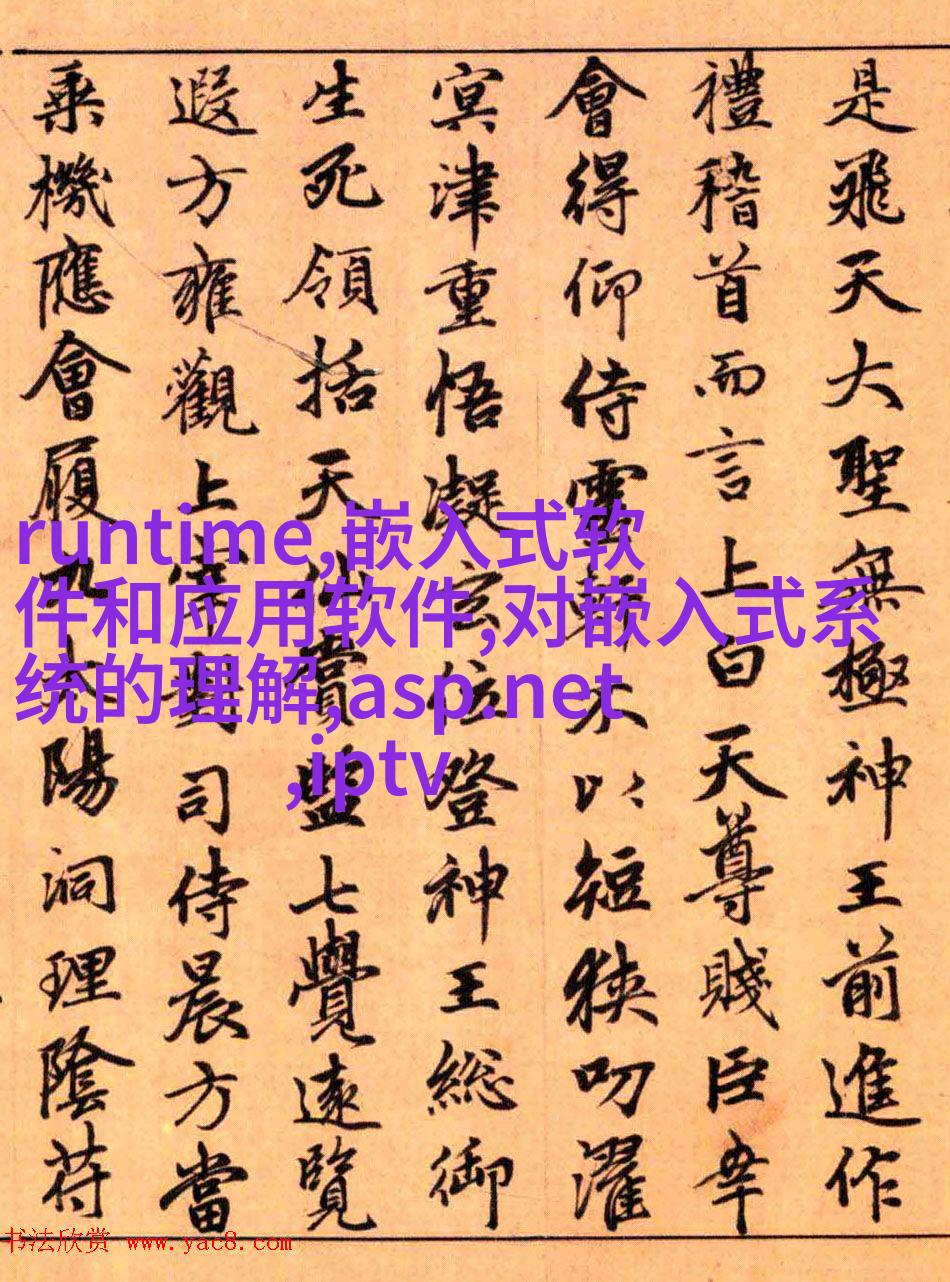 是飛天大聖無極神王前進作
禮稽首而言上白天尊賤臣幸
會得仰侍靈軒不以短狹叨濯
冥津重悟凝玄位登神王総御
生死領括天仙賞監七覺遠覽
遐方雍觀上宰司侍晨方當
乗機應會履九太陽洞理陰符
runtime,嵌入式软
件和应用软件,对嵌入式系
统的理解,asp.net
,iptv
书法欣赏 www.yac8.com